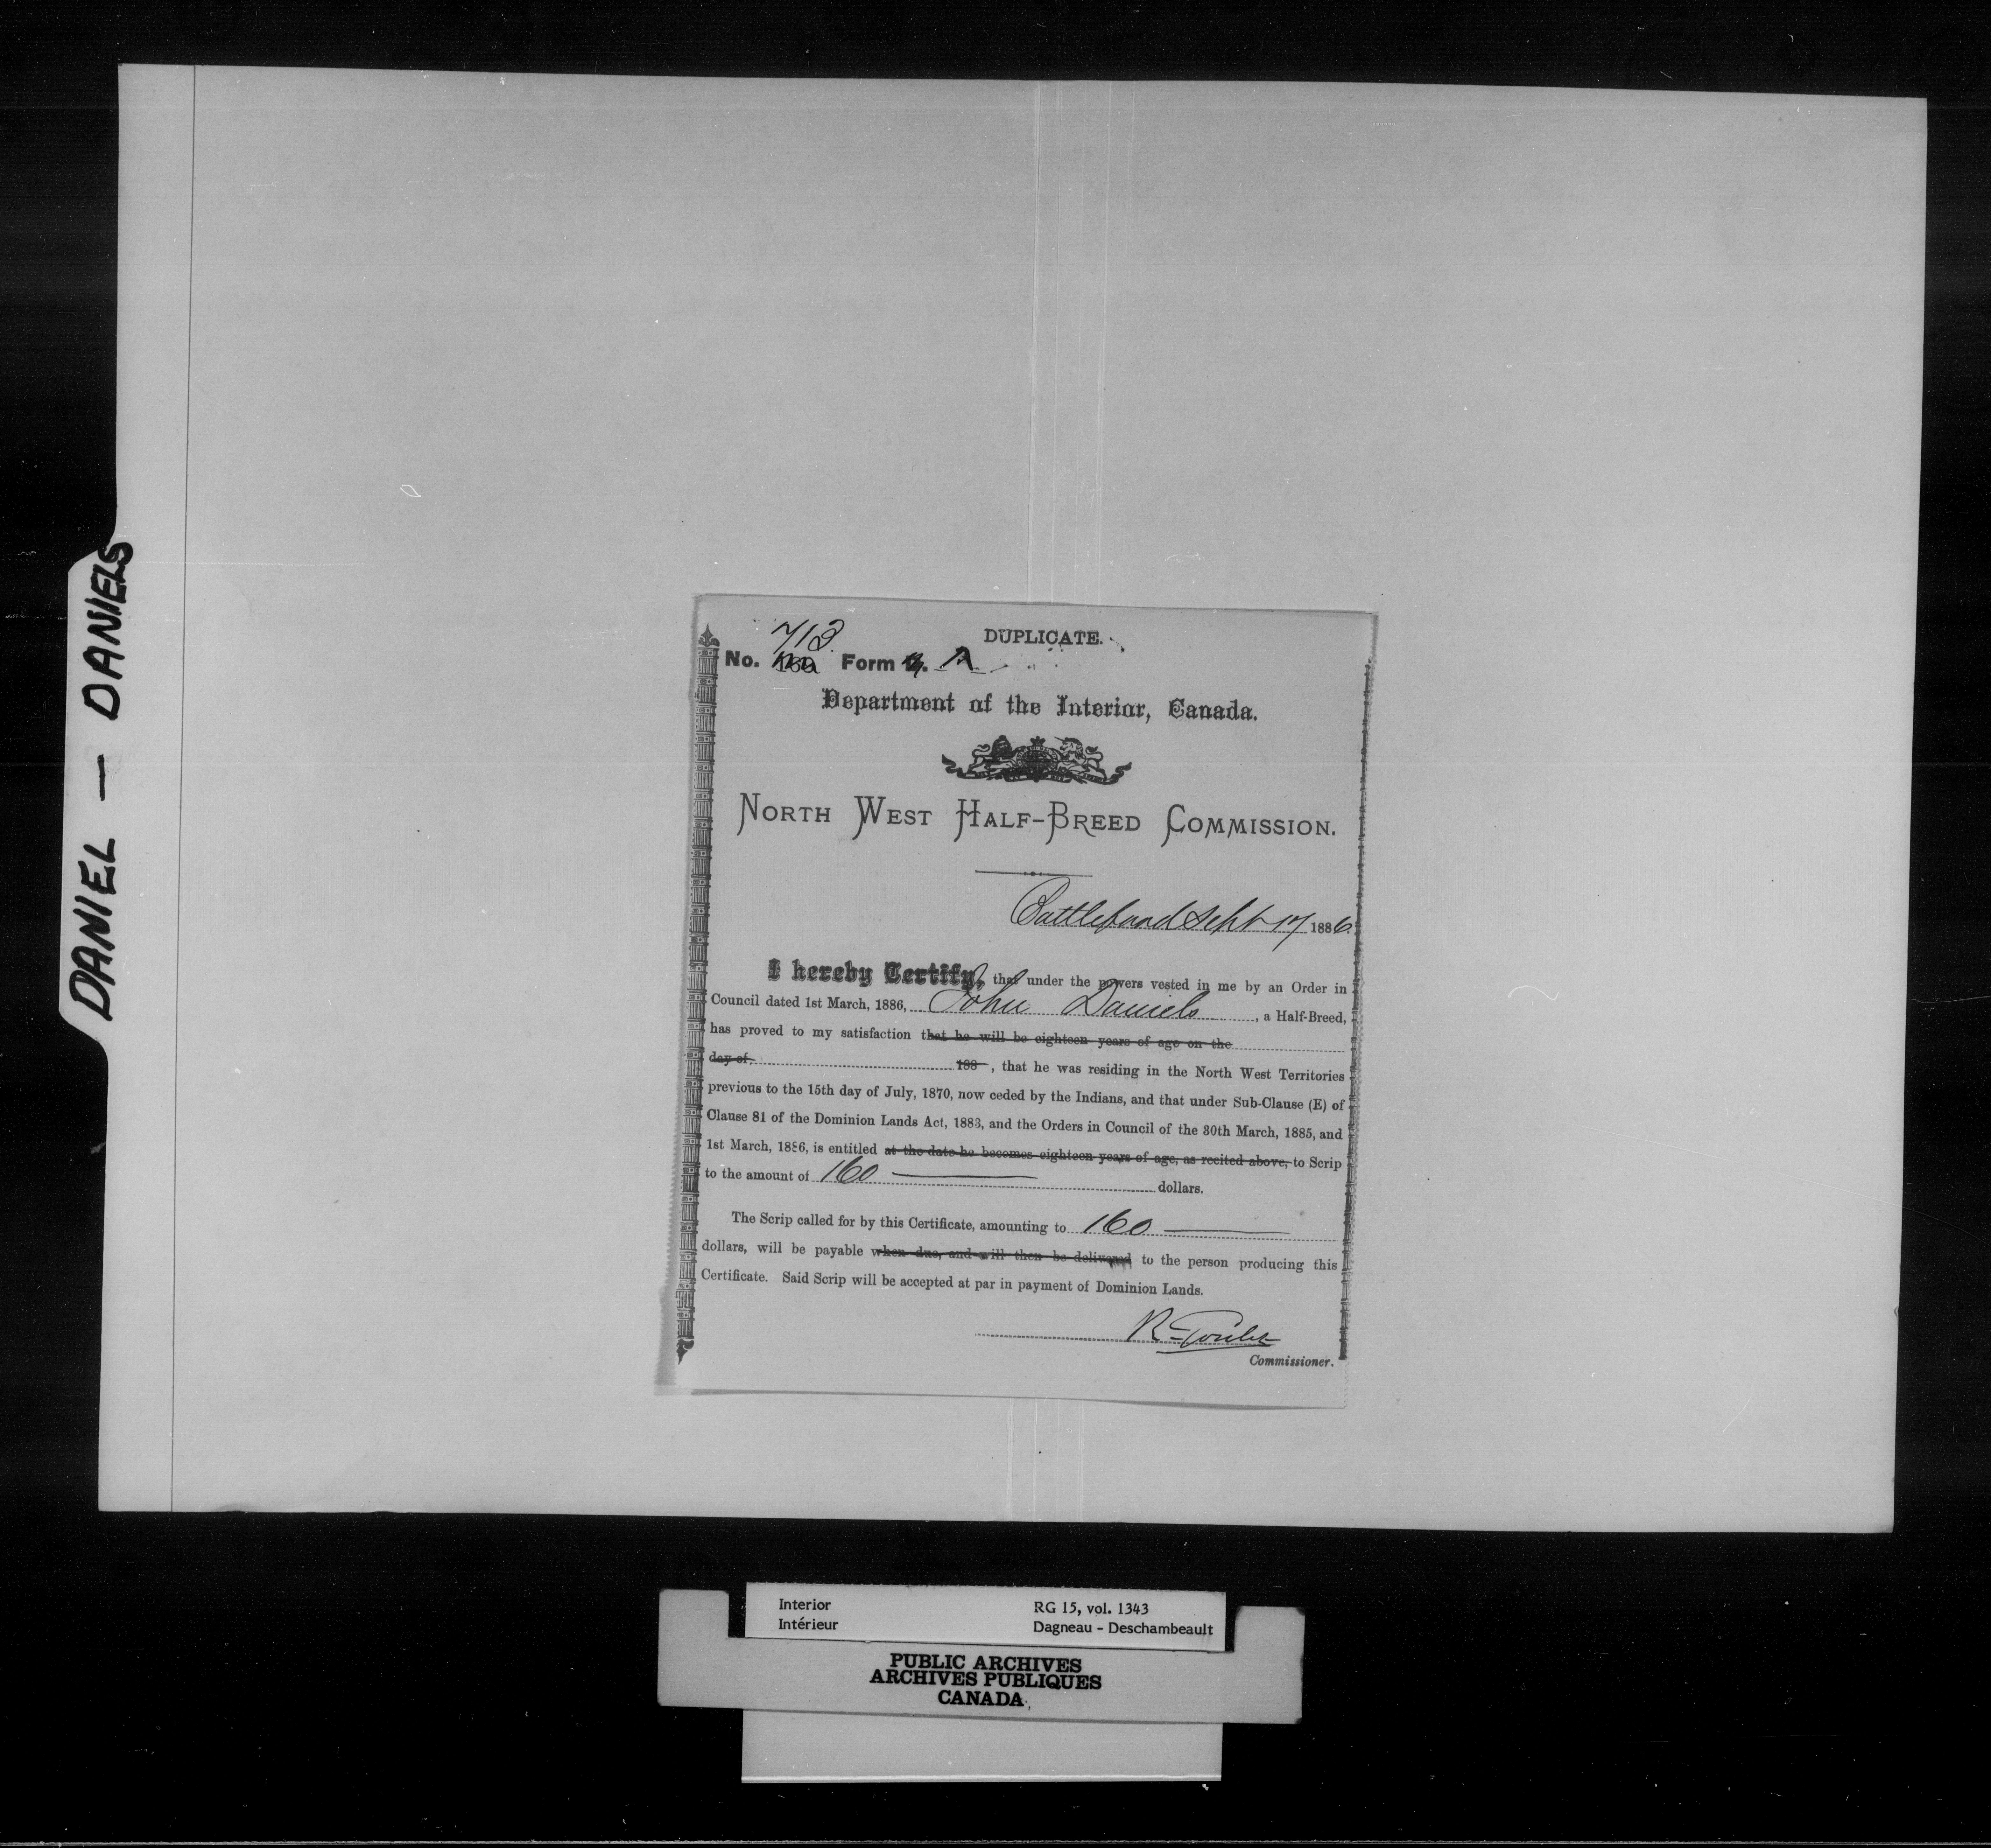 DANIEL — DANIELS
DUPLICATE.
713
No. Form A
Department of the Interior, Canada.
NORTH WEST HALF-BREED COMMISSION.
Battleford Sept 17 1886.
I hereby Certify, that under the powers vested in me by an Order in
Council dated 1st March, 1886, John Daniels, a Half-Breed,
has proved to my satisfaction that he will be eighteen years of age on the
day of 188 , that he was residing in the North West Territories
previous to the 15th day of July, 1870, now ceded by the Indians, and that under Sub-Clause (E) of
Clause 81 of the Dominion Lands Act, 1883, and the Orders in Council of the 30th March, 1885, and
1st March, 1886, is entitled at the date he becomes eighteen years of age, as recited above, to Scrip
to the amount of 160 — dollars.
The Scrip called for by this Certificate, amounting to 160 —
dollars, will be payable when due, and will then be delivered to the person producing this
Certificate. Said Scrip will be accepted at par in payment of Dominion Lands.
R Goulet
Commissioner.
Interior RG 15, vol. 1343
Intérieur Dagneau - Deschambeault
PUBLIC ARCHIVES
ARCHIVES PUBLIQUES
CANADA